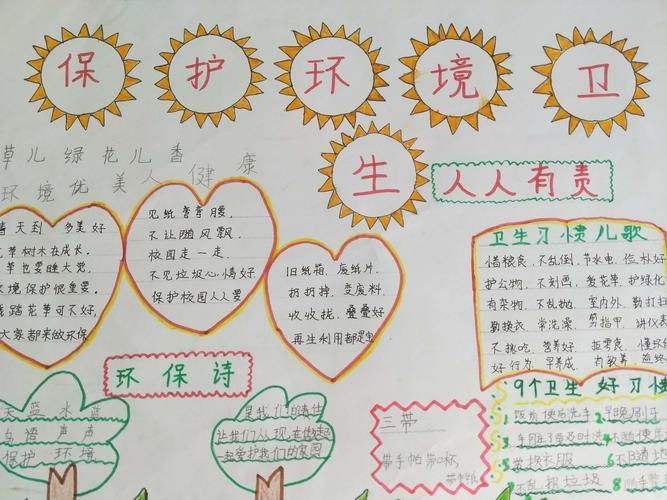 保护环境卫
生 人人有责
草儿绿花儿香
环境优美人健康
天到 多美好
草树木在成长。
草也要睡大觉
环境保护很重要。
踏花草可不好,
大家都来做环保
见纸弯弯腰,
不让随风飘,
校园走一走,
不见垃圾心情好
保护校园人人爱
旧纸箱、废纸片,
扔扔掉、变废料,
收收拢、叠叠好
再生利用都是宝
卫生习惯儿歌
惜粮食、不乱倒、节水电、俭朴好
护公物、不刻画、爱花草、护绿化
有杂物、不乱抛、室内外、勤打扫
勤换衣、常洗澡、剪指甲、讲仪表
不挑吃、营养好、拒零食、懂环
好行为、早养成、有教养
环保诗
天蓝水蓝
鸟语声声
保护环境
是我们的责任
让我们从现在做起
一起爱护我们的家园
三带
带手帕 带口杯
9个卫生好习惯
1饭前便后洗手
2早晚刷牙
勤换衣服
不乱扔垃圾